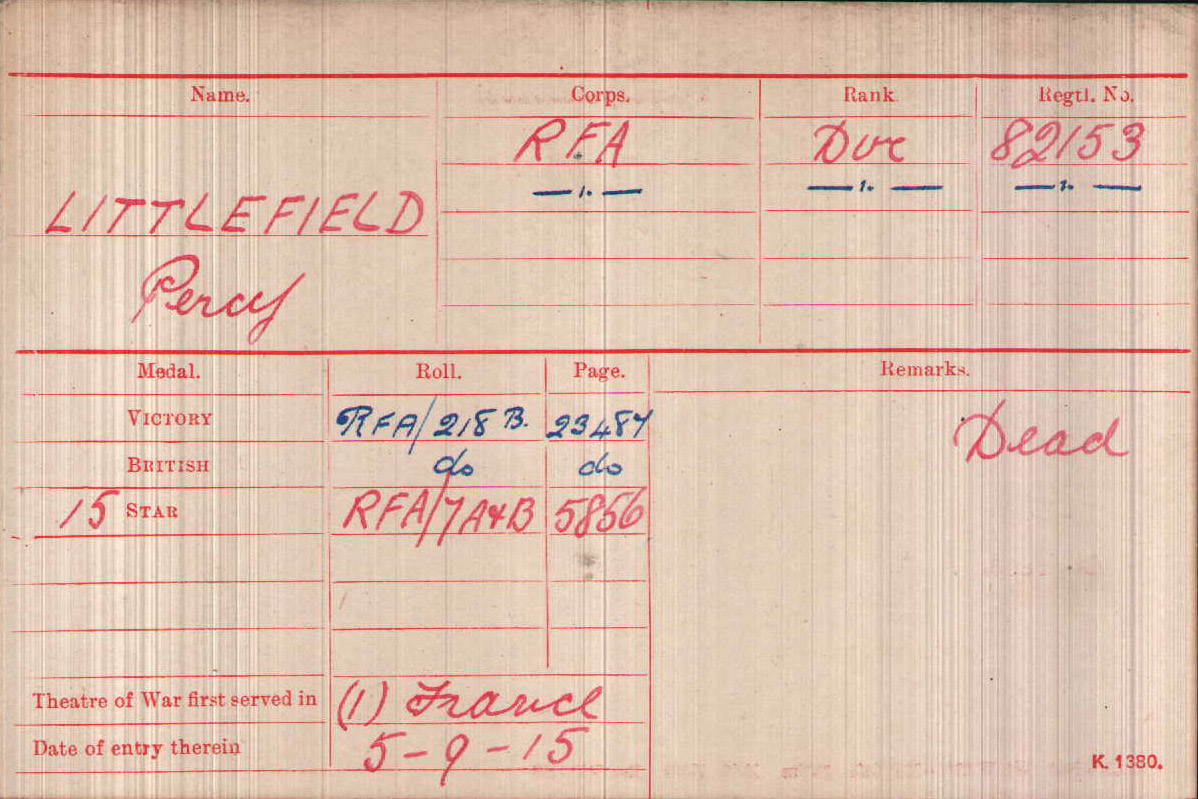 Name. Corps. Rank Regtl. No.
RFA Dvr 82153
—"— —"— —"—
LITTLEFIELD
Percy
Medal. Roll. Page. Remarks.
VICTORY RFA/218 B. 23487 Dead
BRITISH do do
15 STAR RFA/7A&B 5856
Theatre of War first served in (1) France
Date of entry therein 5-9-15
K. 1380.